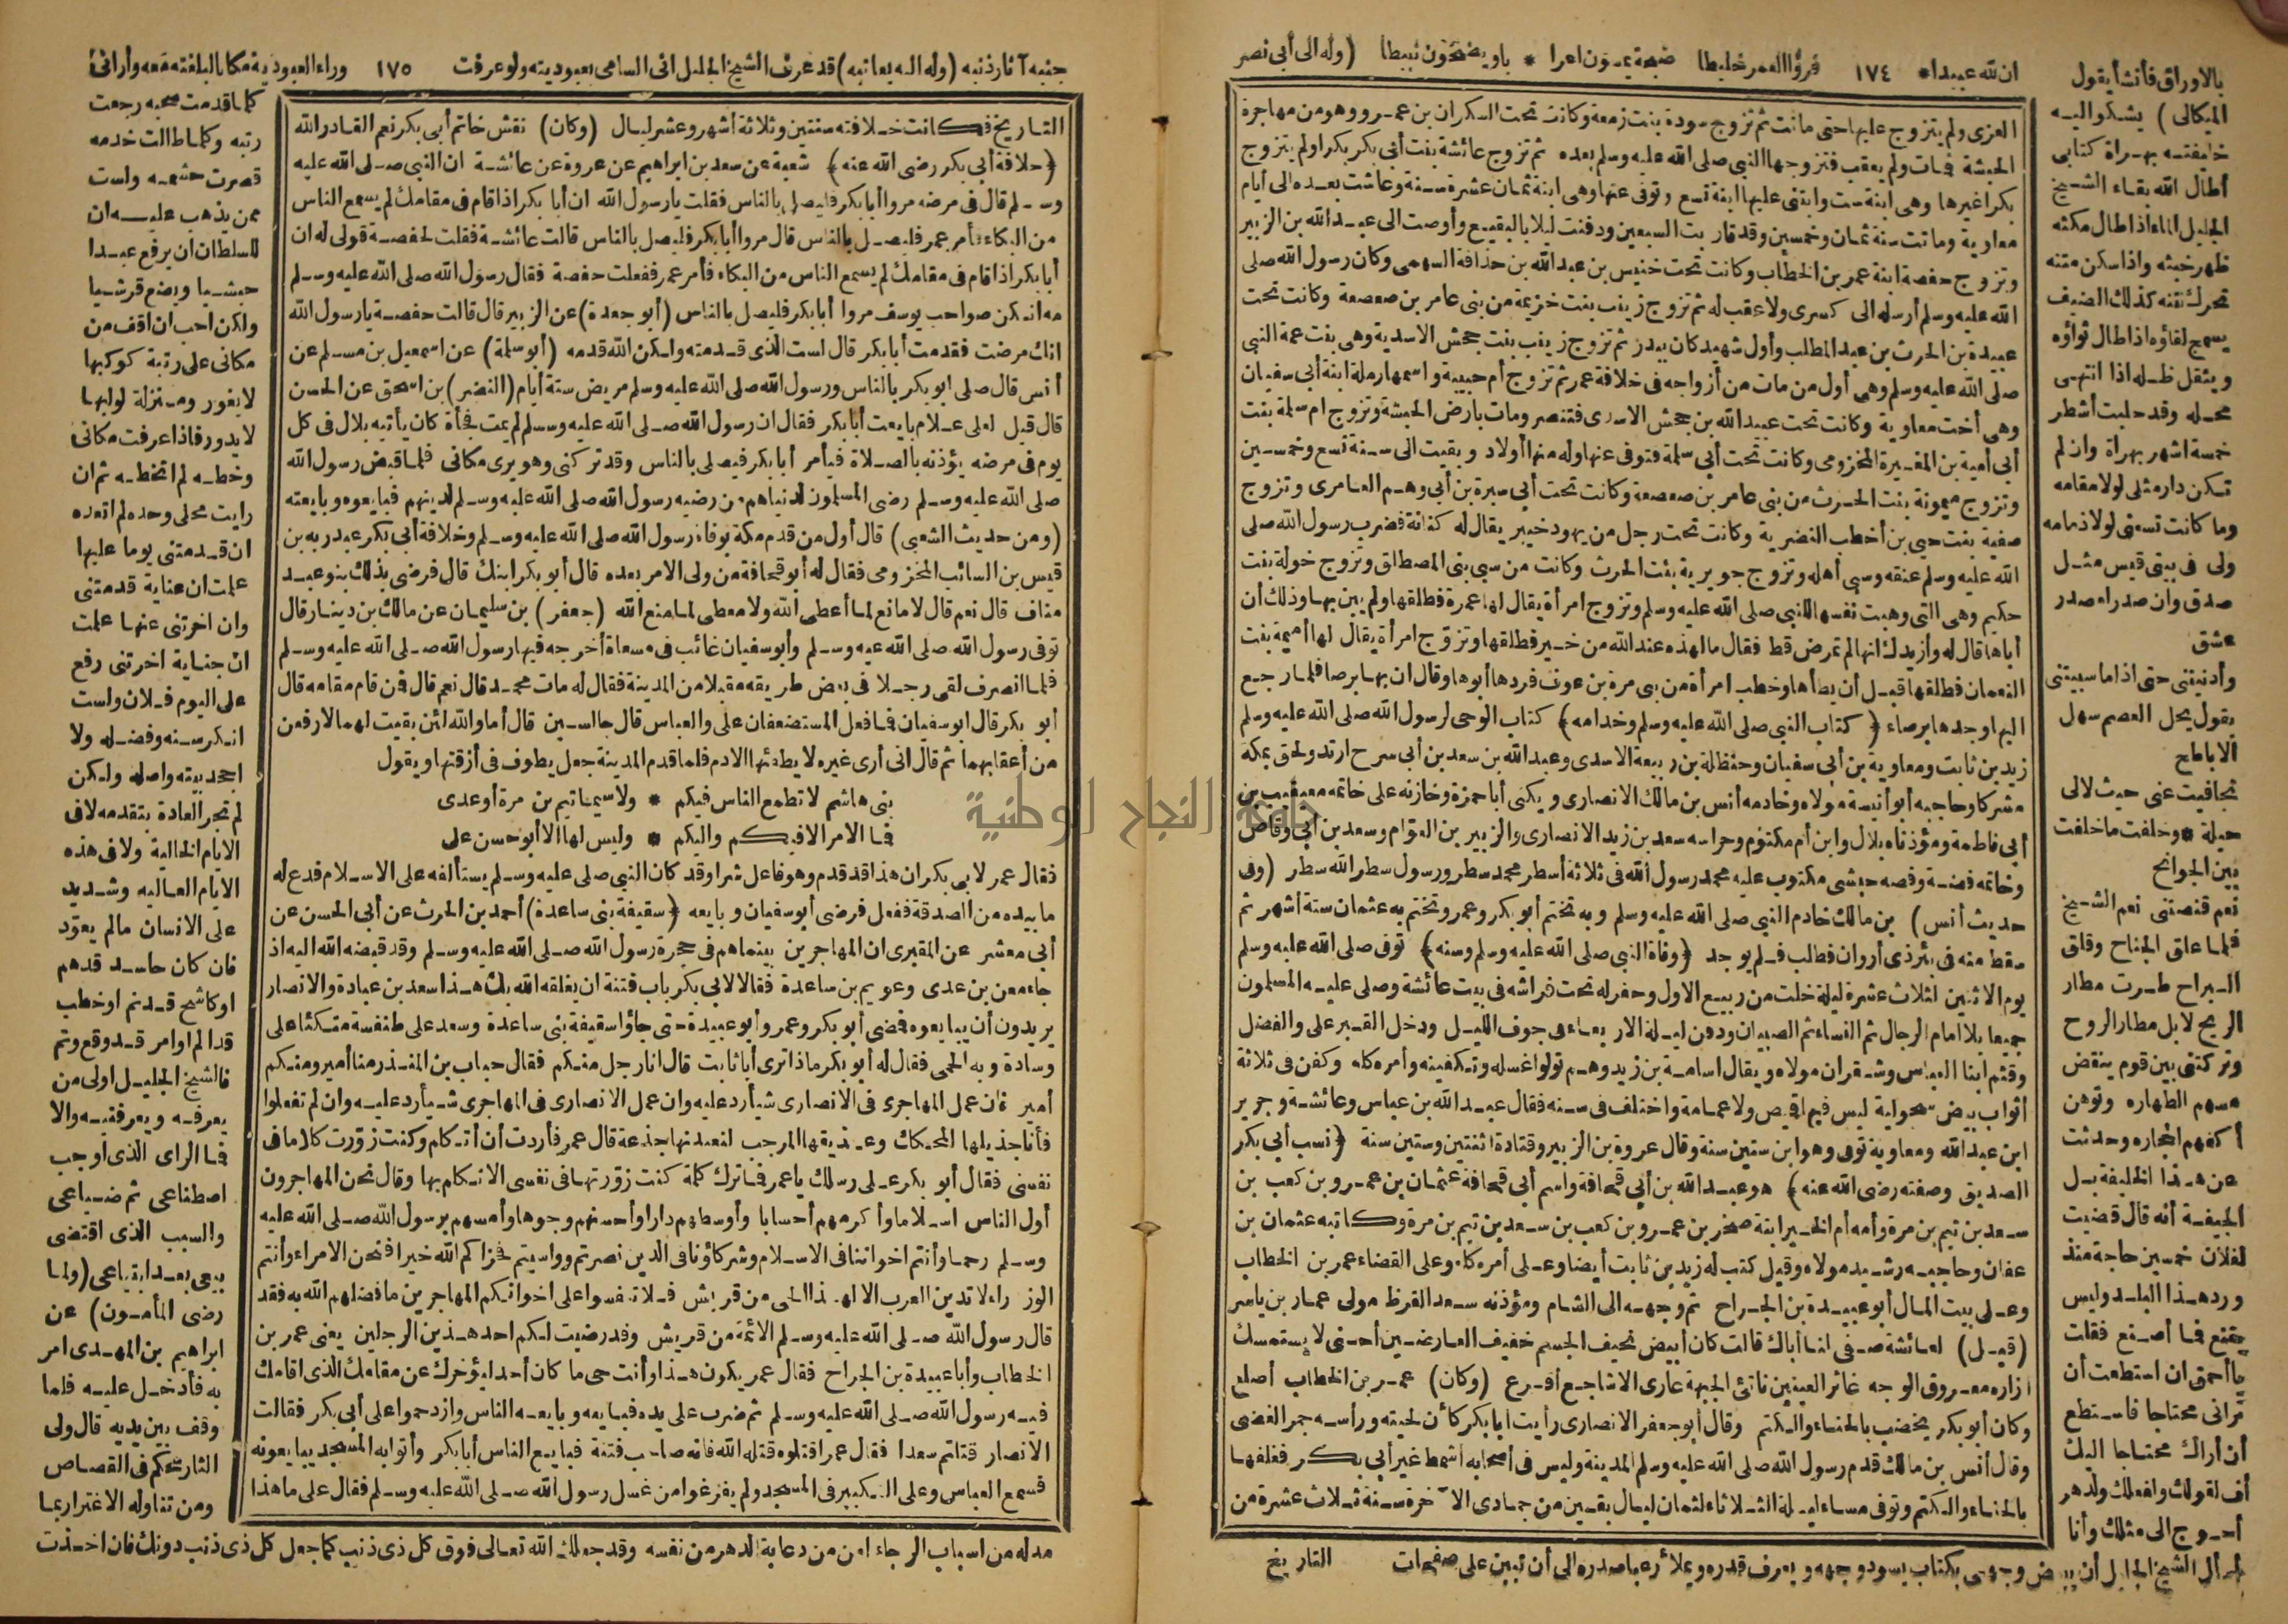 ان لله عبيدا * ١٧٤ فرؤا العمر خليطا
العزى ولم يتزوج عليها حتى ماتت ثم تزوج سودة بنت زمعة وكانت تحت السكران بن عمرو وهو من مهاجرة
الحبشة فمات ولم يعقب فتزوجها النبي صلى الله عليه وسلم بعده ثم تزوج عائشة بنت أبي بكر بكرا ولم يتزوج
بكرا غيرها وهى ابنة ست وابتنى عليها ابنة تسع وتوفى عنها وهى ابنة ثمان عشرة سنة وعاشت بعده الى أيام
معاوية وماتت سنة ثمان وخمسين وقد قاربت السبعين ودفنت ليلا بالبقيع وأوصت الى عبد الله بن الزبير
وتزوج حفصة ابنة عمر بن الخطاب وكانت تحت خنيس بن عبد الله بن حذافة السهمى وكان رسول الله صلى
الله عليه وسلم أرسله الى كسرى ولا عقب له ثم تزوج زينب بنت خزيمة من بنى عامر بن صعصعة وكانت تحت
عبيدة بن الحرث بن عبد المطلب وأول شهيد كان ببدر ثم تزوج زينب بنت جحش الاسدية وهى بنت عمة النبي
صلى الله عليه وسلم وهى أول من مات من أزواجه فى خلافة عمر ثم تزوج أم حبيبة واسمها رملة ابنة أبى سفيان
وهى أخت معاوية وكانت تحت عبيد الله بن جحش الاسدى فتنصر ومات بارض الحبشة وتزوج ام سلمة بنت
أبى أمية بن المغيرة المخزومى وكانت تحت أبى سلمة فتوفى عنها وله منها أولاد وبقيت الى سنة تسع وخمسين
وتزوج ميمونة بنت الحرث من بنى عامر بن صعصعة وكانت تحت أبى سبرة بن أبى رهم العامرى وتزوج
صفية بنت حيى بن أخطب النضرية وكانت تحت رجل من يهود خيبر يقال له كنانة فضرب رسول الله صلى
الله عليه وسلم عنقه وسبى أهله وتزوج جويرية بنت الحرث وكانت من سبى بنى المصطلق وتزوج خولة بنت
حكيم وهى التى وهبت نفسها للنبى صلى الله عليه وسلم وتزوج امرأة يقال لها عمرة فطلقها ولم يبن بها وذلك أن
أباها قال له وأزيدك انها لم تمرض قط فقال ما لهذه عند الله من خير فطلقها وتزوج امرأة يقال لها أميمة بنت
النعمان فطلقها قبل أن يطأها وخطب امرأة من بنى مرة بن عوف فردها أبوها وقال ان بها برصا فلما رجع
اليها وجدها برصاء (كتاب النبي صلى الله عليه وسلم وخدامه) كتاب الوحى لرسول الله صلى الله عليه وسلم
زيد بن ثابت ومعاوية بن أبى سفيان وحنظلة بن ربيعة الاسدى وعبد الله بن سعد بن أبى سرح ارتد ولحق بمكة
مشركا وحاجبه أبو أنسة مولاه وخادمه أنس بن مالك الانصارى ويكنى أبا حمزة وخازنه على خاتمه معيقيب بن
أبى فاطمة ومؤذناه بلال وابن أم مكتوم وحراسه سعد بن زيد الانصارى والزبير بن العوام وسعد بن أبى وقاص
وخاتمه فضة وفصه حبشى مكتوب عليه محمد رسول الله فى ثلاثة أسطر محمد سطر ورسول سطر الله سطر (وفى
حديث أنس) بن مالك خادم النبي صلى الله عليه وسلم وبه تختم أبو بكر وعمر وتختم به عثمان ستة أشهر ثم
سقط منه فى بئر ذى أروان فطلب فلم يوجد (وفاة النبي صلى الله عليه وسلم وسنه) توفى صلى الله عليه وسلم
يوم الاثنين لثلاث عشرة ليلة خلت من ربيع الاول وحفر له تحت فراشه فى بيت عائشة وصلى عليه المسلمون
جميعا بلا امام الرجال ثم النساء ثم الصبيان ودفن ليلة الاربعاء فى جوف الليل ودخل القبر على والفضل
وقثم ابنا العباس وشقران مولاه ويقال اسامة بن زيد وهم تولوا غسله وتكفينه وأمره كله وكفن فى ثلاثة
أثواب بيض سحولية ليس فيها قميص ولا عمامة واختلف فى سنه فقال عبد الله بن عباس وعائشة وجرير
ابن عبد الله ومعاوية توفى وهو ابن ستين سنة وقال عروة بن الزبير وقتادة اثنتين وستين سنة (نسب أبى بكر
الصديق وصفته رضى الله عنه) هو عبد الله بن أبى قحافة واسم أبى قحافة عثمان بن عمرو بن كعب بن
سعد بن تيم بن مرة وأمه أم الخير ابنة صخر بن عمرو بن كعب بن سعد بن تيم بن مرة وكاتبه عثمان بن
عفان وحاجبه رشيد مولاه وقيل كتب له زيد بن ثابت أيضا وعلى أمره كله وعلى القضاء عمر بن الخطاب
وعلى بيت المال أبو عبيدة بن الجراح ثم وجهه الى الشام ومؤذنه سعد القرظ مولى عمار بن ياسر
(قيل) لعائشة صفى لنا أباك قالت كان أبيض نحيف الجسم خفيف العارضين أحنى لا يستمسك
ازاره معروق الوجه غائر العينين ناتئ الجبهة عارى الاشاجع أقرع (وكان) عمر بن الخطاب أصلع
وكان أبو بكر يخضب بالحناء والكتم وقال أبو جعفر الانصارى رأيت أبا بكر كأن لحيته ورأسه جمر الغضى
وقال أنس بن مالك قدم رسول الله صلى الله عليه وسلم المدينة وليس فى أصحابه أشمط غير أبى بكر فغلفها
بالحناء والكتم وتوفى مساء ليلة الثلاثاء لثمان ليال بقين من جمادى الآخرة سنة ثلاث عشرة من
التاريخ
بالاوراق فأنشأ يقول
الميكالى) يشكو اليه
خليفته بهراة كتابى
أطال الله بقاء الشيخ
الجليل الماء اذا طال مكثه
ظهر خبثه واذا سكن متنه
تحرك نتنه كذلك الضيف
يسمج لقاؤه اذا طال ثواؤه
ويثقل ظله اذا انتهى
محله وقد حلبت أشطر
خمسة اشهر بهراة وان لم
تكن دار مثلى لولا مقامه
وما كانت تسعنى لولا ذمامه
ولى فى بيتى قيس مثل
صدق وان صدرا صدر
عشق
وأدنيتنى حتى اذا ما سبيتنى
بقول يحل العصم سهل
الاباطح
تجافيت عنى حيث لا لى
حيلة * وخلفت ما خلفت
بين الجوانح
نعم قنصتنى نعم الشيخ
فلما علق الجناح وقلق
البراح طرت مطار
الريح لا بل مطار الروح
وتركتنى بين قوم ينقض
مسهم الطهارة وتوهن
أكفهم الحجارة وحدثت
عن هذا الخليفة بل
الجيفة أنه قال قضيت
لفلان خمسين حاجة منذ
ورد هذا البلد وليس
يقنع فما أصنع فقلت
يا أحمق ان استطعت أن
ترانى محتاجا فاستطع
أن أراك محتاجا اليك
أف لقولك ولفعلك ولدهر
أحوج الى مثلك وأنا
أسأل الشيخ الجليل أن يبيض وجهى بكتاب يسود وجهه ويعرف قدره ويملأ رعبا صدره الى أن تبين على صفحات
١٧٥
التاريخ فكانت خلافته سنتين وثلاثة أشهر وعشر ليال (وكان) نقش خاتم أبى بكر نعم القادر الله
(خلافة أبى بكر رضى الله عنه) شعبة عن سعد بن ابراهيم عن عروة عن عائشة ان النبي صلى الله عليه
وسلم قال فى مرضه مروا أبا بكر فليصل بالناس فقلت يا رسول الله ان أبا بكر اذا قام فى مقامك لم يسمع الناس
من البكاء فأمر عمر فليصل بالناس قال مروا أبا بكر فليصل بالناس قالت عائشة فقلت لحفصة قولى له ان
أبا بكر اذا قام فى مقامك لم يسمع الناس من البكاء فأمر عمر ففعلت حفصة فقال رسول الله صلى الله عليه وسلم
مه انكن صواحب يوسف مروا أبا بكر فليصل بالناس (أبو جعدة) عن الزبير قال قالت حفصة يا رسول الله
انك مرضت فقدمت أبا بكر قال لست الذى قدمته ولكن الله قدمه (أبو سلمة) عن اسمعيل بن مسلم عن
أنس قال صلى ابو بكر بالناس ورسول الله صلى الله عليه وسلم مريض ستة أيام (النضر) بن اسحق عن الحسن
قال قيل لعلى علام بايعت أبا بكر فقال ان رسول الله صلى الله عليه وسلم لم يمت فجأة كان يأتيه بلال فى كل
يوم فى مرضه يؤذنه بالصلاة فيأمر أبا بكر فيصلى بالناس وقد تركنى وهو يرى مكانى فلما قبض رسول الله
صلى الله عليه وسلم رضى المسلمون لدنياهم من رضيه رسول الله صلى الله عليه وسلم لدينهم فبايعوه وبايعته
(ومن حديث الشعبى) قال أول من قدم مكة بوفاة رسول الله صلى الله عليه وسلم وخلافة أبى بكر عبد ربه بن
قيس بن السائب المخزومى فقال له أبو قحافة من ولى الامر بعده قال أبو بكر ابنك قال فرضى بذلك بنو عبد
مناف قال نعم قال لا مانع لما أعطى الله ولا معطى لما منع الله (جعفر) بن سليمان عن مالك بن دينار قال
توفى رسول الله صلى الله عليه وسلم وأبو سفيان غائب فى مسعاة أخرجه فيها رسول الله صلى الله عليه وسلم
فلما انصرف لقى رجلا فى بعض طريقه مقبلا من المدينة فقال له مات محمد قال نعم قال فمن قام مقامه قال
أبو بكر قال ابو سفيان فما فعل المستضعفان على والعباس قال جالسين قال أما والله لئن بقيت لهما لارفعن
من أعقابهما ثم قال انى أرى غيره لا يطفئها الا دم فلما قدم المدينة جعل يطوف فى أزقتها ويقول
بنى هاشم لا تطمع الناس فيكم * ولا سيما تيم بن مرة أو عدى
فما الامر الا فيكم واليكم * وليس لها الا أبو حسن على
فقال عمر لابى بكر ان هذا قد قدم وهو فاعل شرا وقد كان النبي صلى عليه وسلم يستألفه على الاسلام فدع له
ما بيده من الصدقة ففعل فرضى أبو سفيان وبايعه (سقيفة بنى ساعدة) أحمد بن الحرث عن أبى الحسن عن
أبى معشر عن المقبرى ان المهاجرين بينما هم فى حجرة رسول الله صلى الله عليه وسلم وقد قبضه الله اليه اذ
جاء معن بن عدى وعويم بن ساعدة فقالا لابى بكر باب فتنة ان يغلقه الله بك هذا سعد بن عبادة والانصار
يريدون أن يبايعوه فمضى أبو بكر وعمر وأبو عبيدة حتى جاؤا سقيفة بنى ساعدة وسعد على طنفسة متكئا على
وسادة وبه الحمى فقال له أبو بكر ماذا ترى أبا ثابت قال انا رجل منكم فقال حباب بن المنذر منا أمير ومنكم
أمير فان عمل المهاجرى فى الانصارى شيأ رد عليه وان عمل الانصارى فى المهاجرى شيأ رد عليه وان لم تفعلوا
فأنا جذيلها المحكك وعذيقها المرجب لنعيدنها جذعة قال عمر فأردت أن أتكلم وكنت زورت كلاما فى
نفسى فقال أبو بكر على رسلك يا عمر فما ترك كلمة كنت زورتها فى نفسى الا تكلم بها وقال نحن المهاجرون
أول الناس اسلاما وأكرمهم أحسابا وأوسطهم دارا وأحسنهم وجوها وأمسهم برسول الله صلى الله عليه
وسلم رحما وأنتم اخواننا فى الاسلام وشركاؤنا فى الدين نصرتم وواسيتم فجزاكم الله خيرا فنحن الامراء وأنتم
الوزراء لا تدين العرب الا لهذا الحى من قريش فلا تنفسوا على اخوانكم المهاجرين ما فضلهم الله به فقد
قال رسول الله صلى الله عليه وسلم الائمة من قريش وقد رضيت لكم احد هذين الرجلين يعنى عمر بن
الخطاب وأبا عبيدة بن الجراح فقال عمر يكون هذا وأنت حى ما كان أحد ليؤخرك عن مقامك الذى اقامك
فيه رسول الله صلى الله عليه وسلم ثم ضرب على يده فبايعه وبايعه الناس وازدحموا على أبى بكر فقالت
الانصار قتلتم سعدا فقال عمر اقتلوه قتله الله فانه صاحب فتنة فبايع الناس أبا بكر وأتوا به المسجد يبايعونه
فسمع العباس وعلى التكبير فى المسجد ولم يفرغوا من غسل رسول الله صلى الله عليه وسلم فقال على ما هذا
كلما قدمت صحبه رجعت
رتبه وكلما طالت خدمه
قصرت حشمه ولست
ممن يذهب عليه ان
للسلطان ان يرفع عبدا
حبشيا ويضع قرشيا
ولكن احب ان اقف من
مكانى على رتبة كوكبها
لا يغور ومنزلة لولبها
لا يدور فاذا عرفت مكانى
وخطه لم اتخطه ثم ان
رايت محلى وحده لم اتعده
ان قدمتنى يوما عليها
علمت ان عناية قدمتنى
وان اخرتنى عنها علمت
ان جناية اخرتنى رفع
على اليوم فلان ولست
انكر سنه وفضله ولا
اجحد بيته واصله ولكن
لم تجر العادة بتقدمه لا فى
الايام الخالية ولا فى هذه
الايام العاليه وشديد
على الانسان مالم يعود
فان كان حاسد قد هم
او كاشح قد نم او خطب
قد الم او امر قد وقع وتم
فالشيخ الجليل اولى من
يعرفه ويعرفنيه والا
فما الراى الذى أوجب
اصطناعى ثم ضياعى
والسبب الذى اقتضى
بيعى بعد ابتياعى (ولما
رضى المأمون) عن
ابراهيم بن المهدى امر
به فأدخل عليه فلما
وقف بين يديه قال ولى
الثار محكم فى القصاص
ومن تناوله الاغترار بما
مد له من اسباب الرجاء امن من دعاية الدهر من نفسه وقد جعلك الله تعالى فوق كل ذى ذنب كما جعل كل ذى ذنب دونك فان اخذت
جامعة النجاح الوطنية